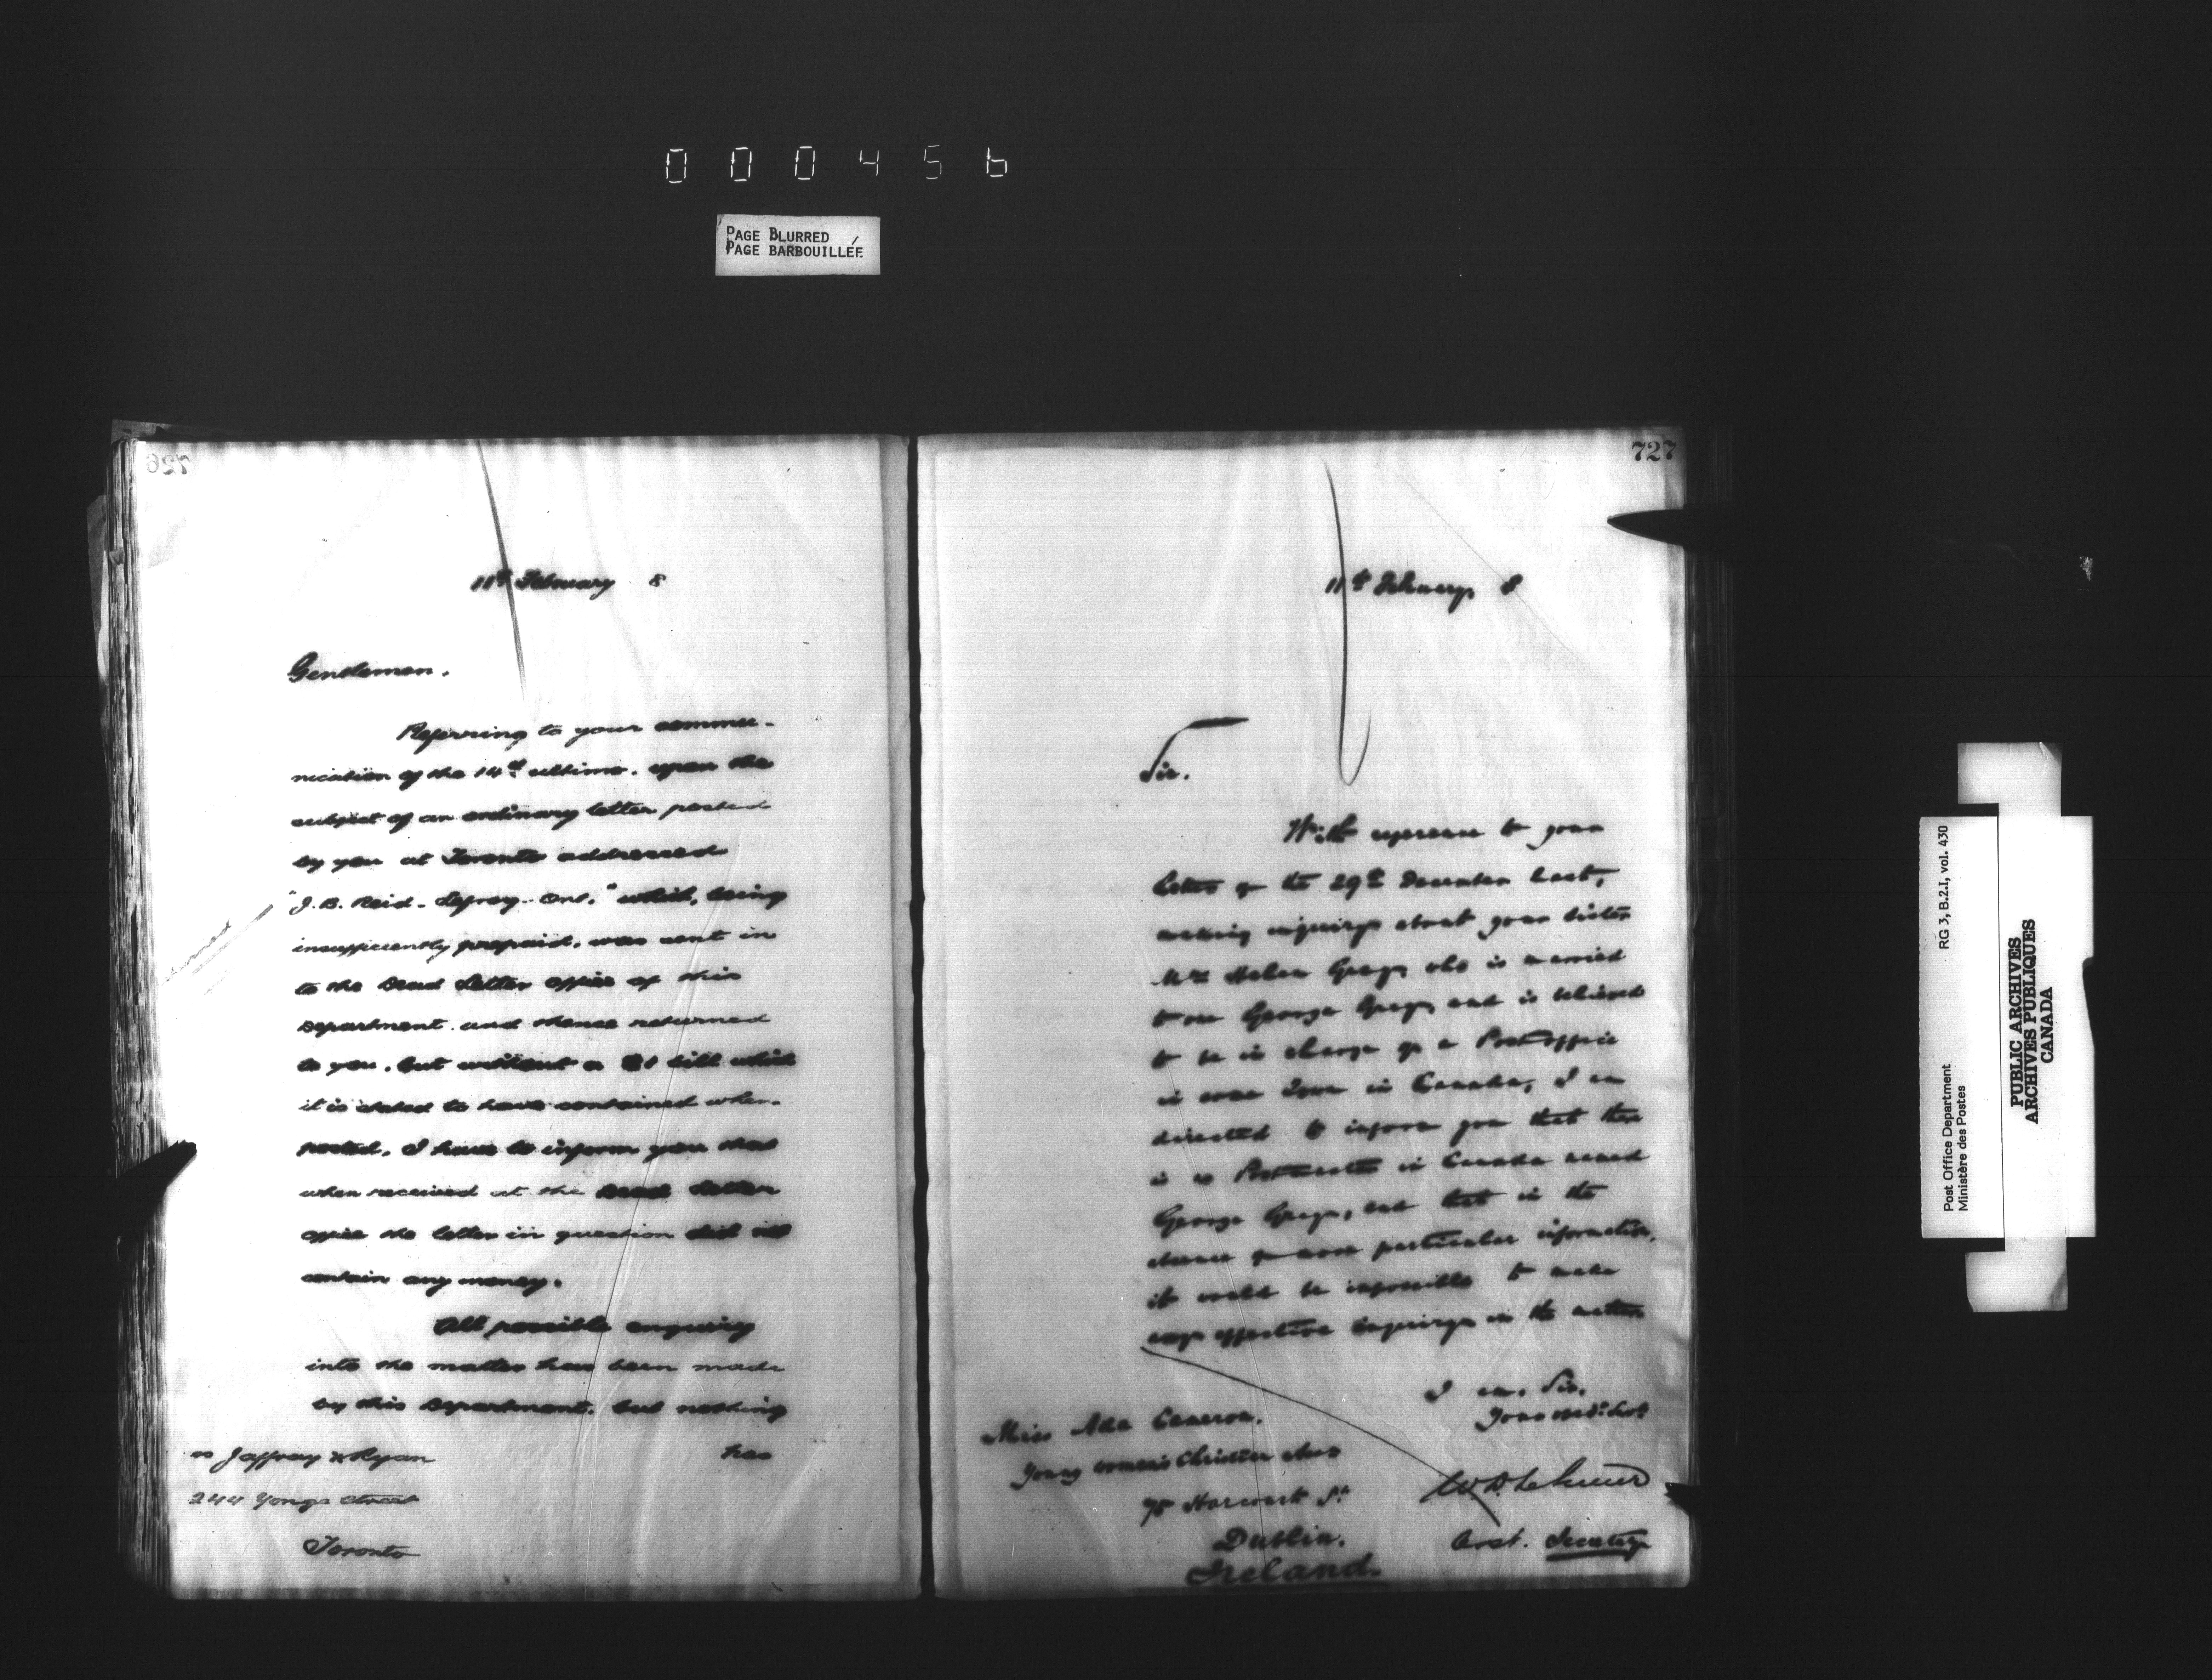 000456
PAGE BLURRED
PAGE BARBOUILLÉE
726
11th February 8
Gentlemen.
Referring to your commu-
nication of the 14th ultimo, upon the
subject of an ordinary letter posted
by you at Toronto addressed
"J. B. Reid - Lefroy - Ont." which, being
insufficiently prepaid, was sent in
to the Dead Letter Office of this
Department and thence returned
to you, but without a $1 bill which
it is stated to have contained when
posted, I have to inform you that
when received at the Dead Letter
Office the letter in question did not
contain any money.
All possible enquiry
into the matter has been made
by this Department, but nothing
has
Jaffray & Ryan
244 Yonge Street
Toronto
727
11th February 8
Sir.
With reference to your
letter of the 29th December last,
making inquiry about your sister
Mrs Helen Gregg who is married
to one George Gregg and is believed
to be in charge of a Post office
in some Town in Canada, I am
directed to inform you that there
is no Postmaster in Canada named
George Gregg, but that in the
absence of more particular information,
it would be impossible to make
any effective inquiry in the matter
I am, Sir,
Your obedt. Servt
W D LeSueur
Asst. Secretary
Miss Ada Cameron.
Young Women's Christian Assn
75 Harcourt St
Dublin.
Ireland.
Post Office Department
Ministère des Postes
RG 3, B.2.I, vol. 430
PUBLIC ARCHIVES
ARCHIVES PUBLIQUES
CANADA